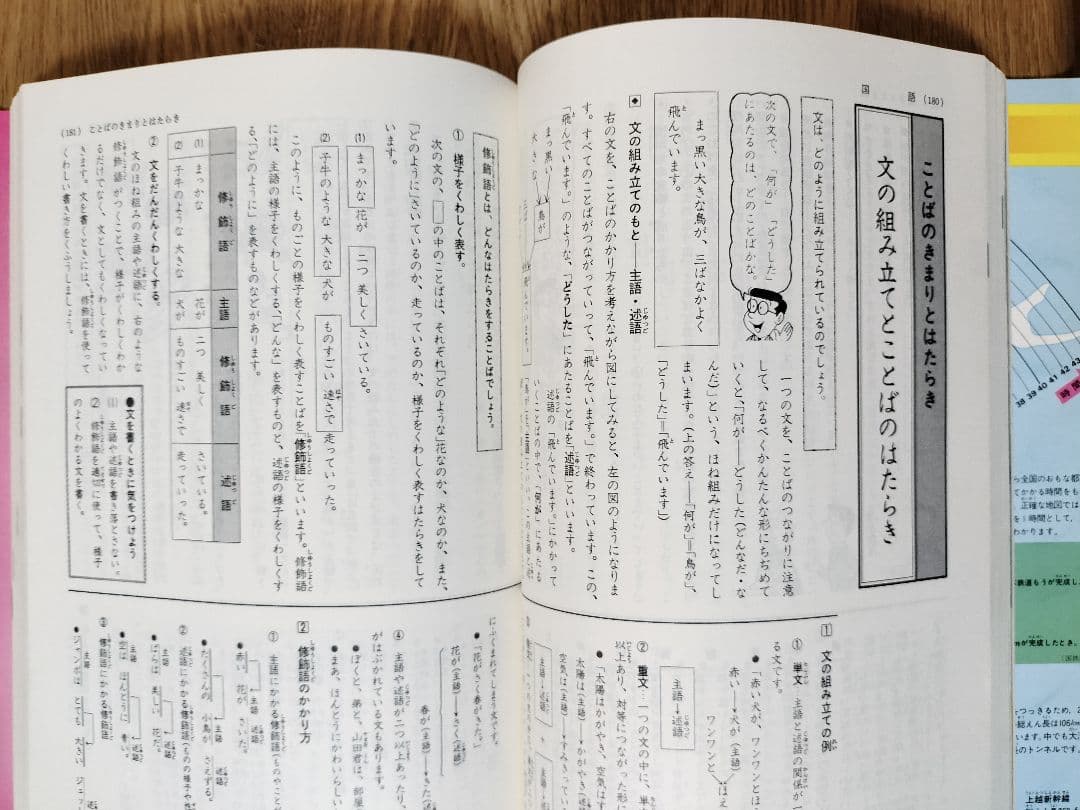 国語 (180)
ことばのきまりとはたらき
文の組み立てとことばのはたらき
文は、どのように組み立てられているのでしょう。
次の文で、「何が」「どうした」
にあたるのは、どのことばかな。
一つの文を、ことばのつながりに注意
して、なるべくかんたんな形にちぢめて
いくと、「何が――どうした(どんなだ・な
んだ)」という、ほね組みだけになってし
まいます。(上の答え――「何が」=「鳥が」、
「どうした」=「飛んでいます」)
まっ黒い大きな鳥が、三ばなかよく
飛んでいます。
◆ 文の組み立てのもと――主語・述語
右の文を、ことばのかかり方を考えながら図にしてみると、左の図のようになりま
す。すべてのことばがつながっていって、「飛んでいます。」で終わっています。この、
「飛んでいます。」のような、「どうした」にあたることばを述語といいます。
まっ黒い
大きな
鳥が
述語の「飛んでいます。」にかかって
いくことばの中で、「何が」にあたる
1 文の組み立ての例
① 単文…主語と述語の関係が一
る文です。
●「赤い犬が、ワンワンとほ
赤い→犬が(主語)
ワンワンと
主語→述語
② 重文…一つの文の中に、単
以上あり、対等につながった形に
●「太陽はかがやき、空気はす
太陽は(主語)→かがやき(述語)
空気は(主語)→すみきってい
主語→述語
(181) ことばのきまりとはたらき
修飾語とは、どんなはたらきをすることばでしょう。
① 様子をくわしく表す。
次の文の、□の中のことばは、それぞれ「どのような」花なのか、犬なのか、また、
「どのように」さいているのか、走っているのか、様子をくわしく表すはたらきをして
います。
(1) まっかな 花が 二つ 美しく さいている。
(2) 子牛のような 大きな 犬が ものすごい 速さで 走っていった。
このように、ものごとの様子をくわしく表すことばを「修飾語」といいます。修飾語
には、主語の様子をくわしくする、「どんな」を表すものと、述語の様子をくわしくす
る、「どのように」を表すものなどがあります。
修飾語 主語 修飾語 述語
(1) まっかな 花が 二つ 美しく さいている。
(2) 子牛のような 大きな 犬が ものすごい 速さで 走っていった。
② 文をだんだんくわしくする。
文のほね組みの主語や述語に、右のような
修飾語がつくことで、様子がくわしくわか
るだけでなく、文としてもくわしくなってい
きます。文を書くときには、修飾語を使って
くわしい書き方をくふうしましょう。
●文を書くときに気をつけよう
(1) 主語や述語を書き落とさない。
(2) 修飾語を適切に使って、様子
のよくわかる文を書く。
にふくまれてしまう文です。
●「花がさく春がきた。」
花が(主語)→さく(述語)
春が(主語)→きた(述語
④ 主語や述語が二つ以上あったり、
がはぶかれている文もあります。
●ぼくと、弟と、山田君は、部屋
●まあ、ほんとうにかわいらしい
2 修飾語のかかり方
① 主語にかかる修飾語(ものやこと
主語 述語
●赤い 花が さいた。
主語 述語
●たくさんの 小鳥が さえずる。
② 述語にかかる修飾語(ものの様子や性
主語 述語
●ばらは 美しい 花だ。
主語 述語
●空は ほんとうに 青い。
③ 修飾語にかかる修飾語
主語 述語
●ジャンボは とても 大きい ジェッ
38 39 40 41 42 43
時間
ら全国のおもな都
てかかる時間をも
正確な地図では
を1時間として、
わかります。
鉄道もうが完成し
が完成したとき。
をつっきるため、2
総えん長は106km
います。中でも大
のトンネルです。
上越新幹線